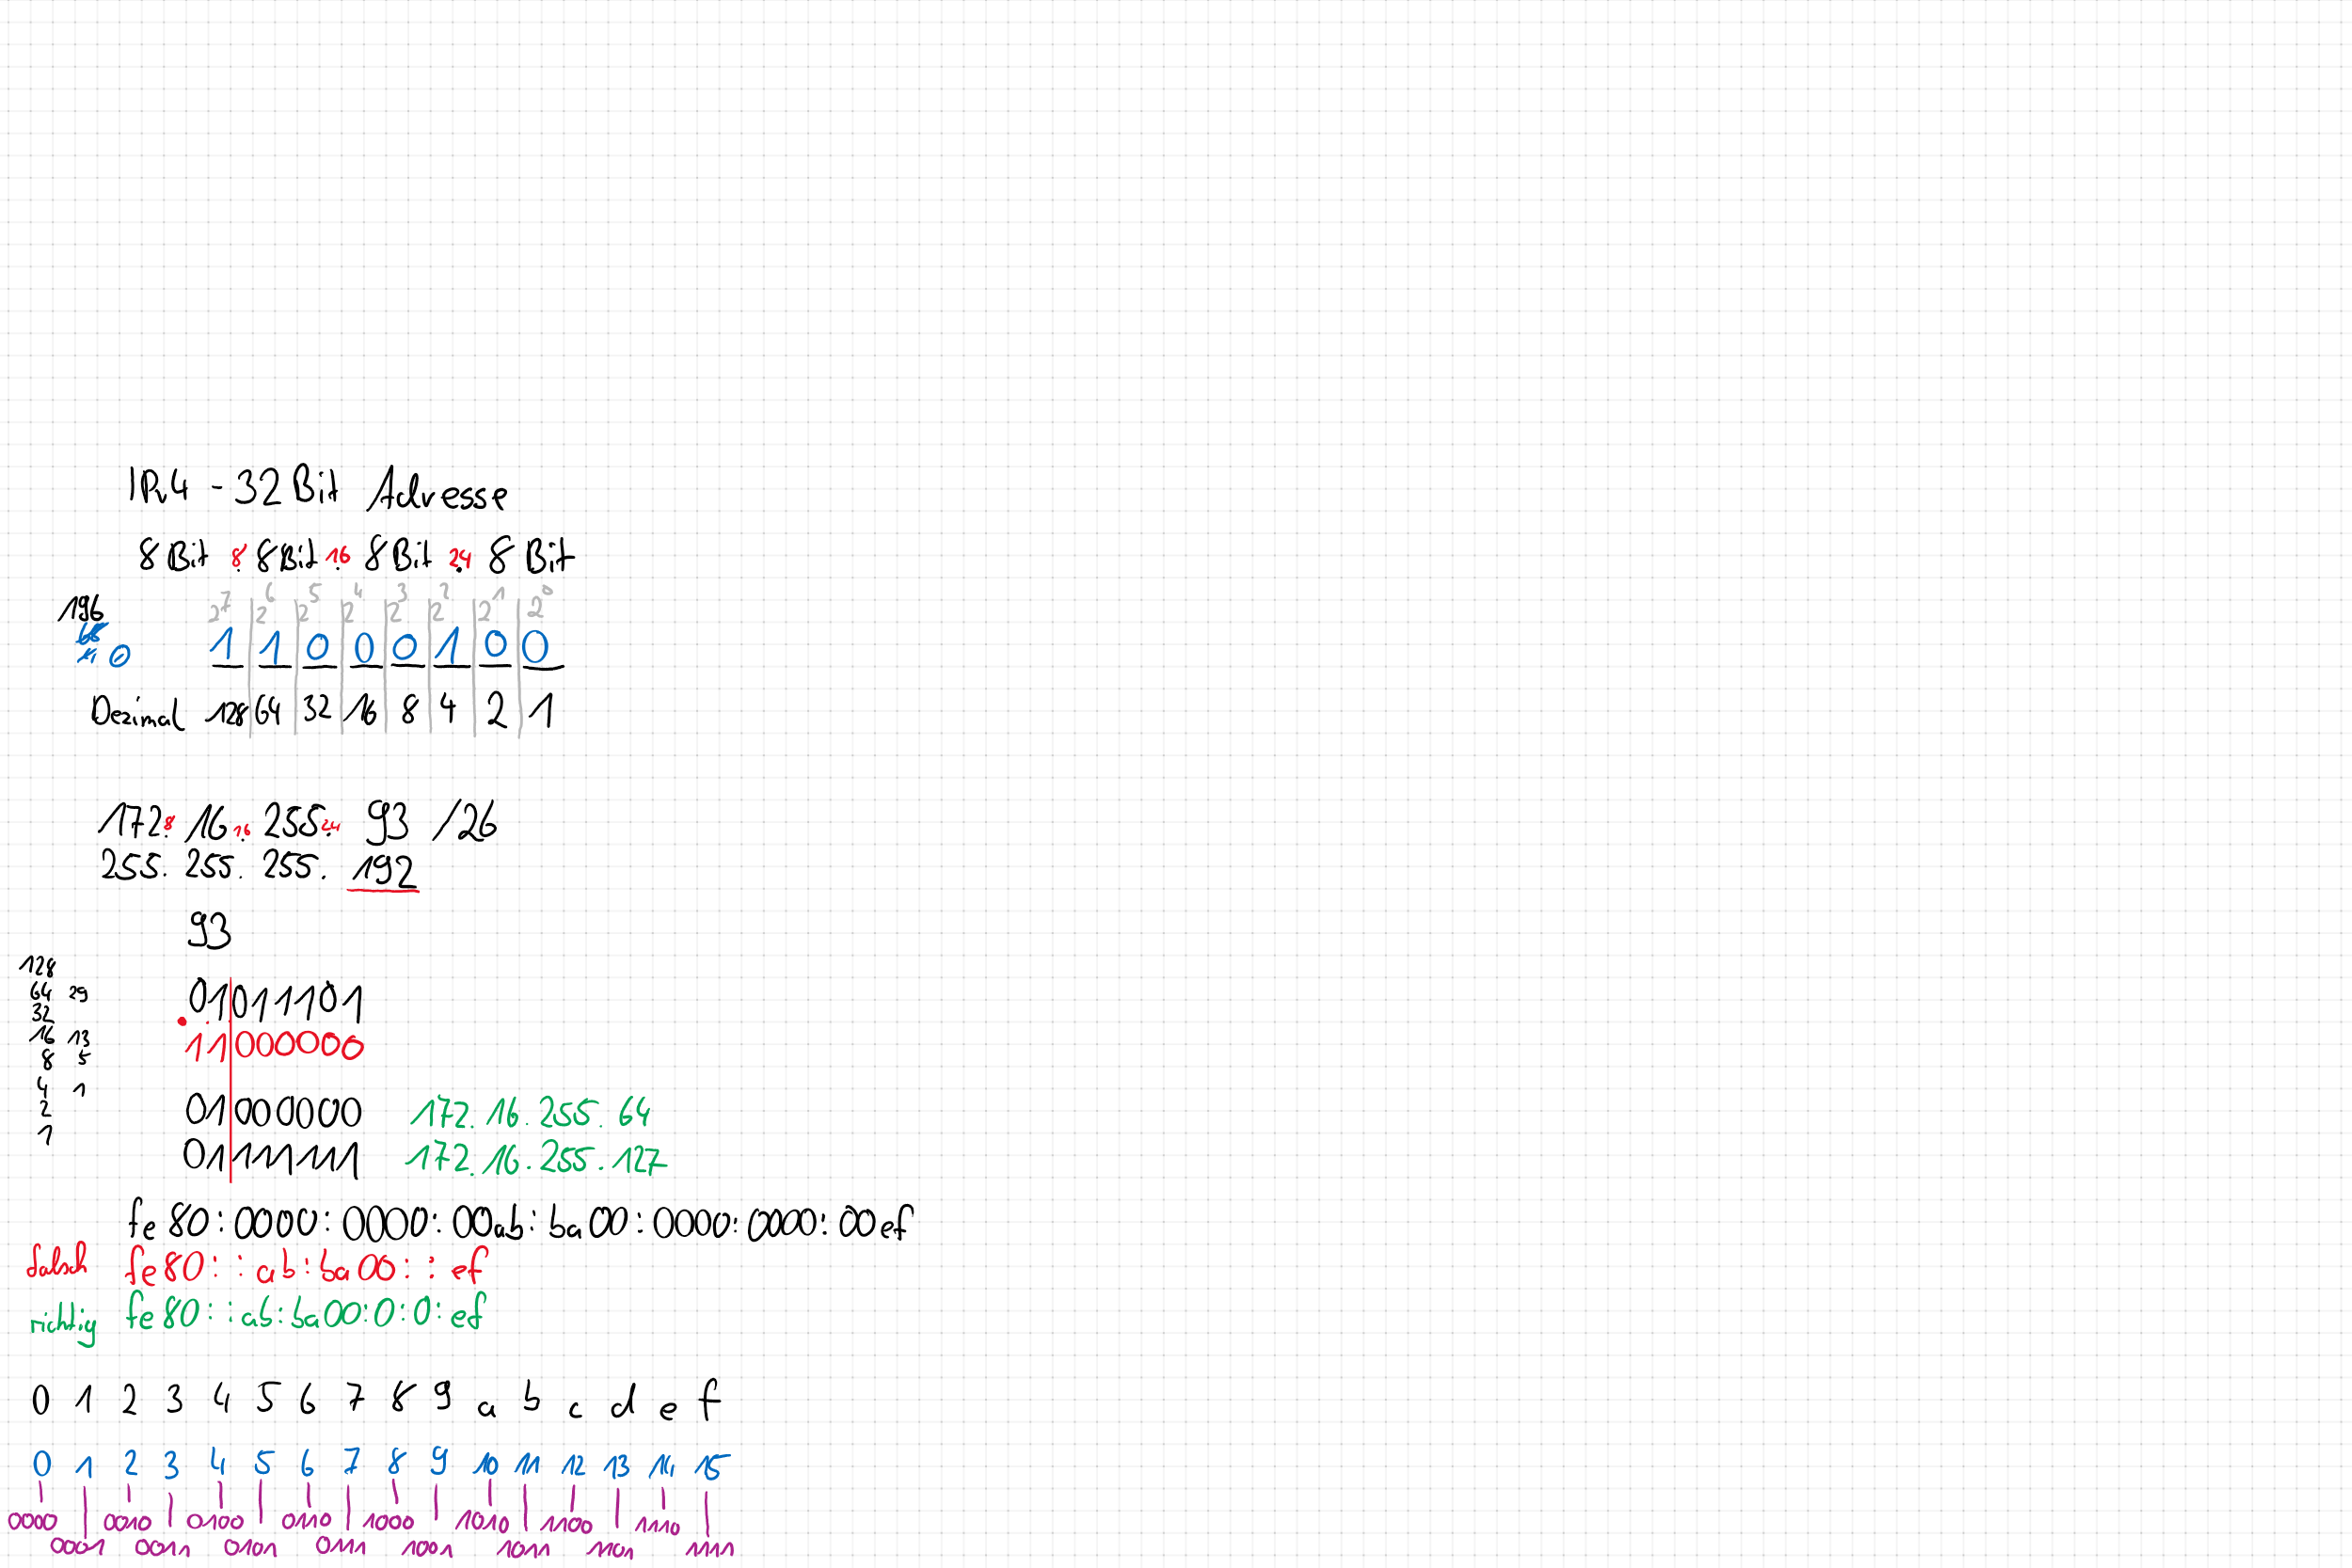 IPv4 - 32 Bit Adresse
8 Bit 8. 8 Bit 16. 8 Bit 24. 8 Bit
2^7 2^6 2^5 2^4 2^3 2^2 2^1 2^0
196
1 1 0 0 0 1 0 0
0
Dezimal 128 64 32 16 8 4 2 1
172.8 16.16 255.24 93 /26
255. 255. 255. 192
93
128
64 29
32
16 13
8 5
4 1
2
1
01011101
11000000
01000000 172.16.255.64
01111111 172.16.255.127
fe80:0000:0000:00ab:ba00:0000:0000:00ef
falsch fe80::ab:ba00::ef
richtig fe80::ab:ba00:0:0:ef
0 1 2 3 4 5 6 7 8 9 a b c d e f
0 1 2 3 4 5 6 7 8 9 10 11 12 13 14 15
0000 0010 0100 0110 1000 1010 1100 1110
0001 0011 0101 0111 1001 1011 1101 1111